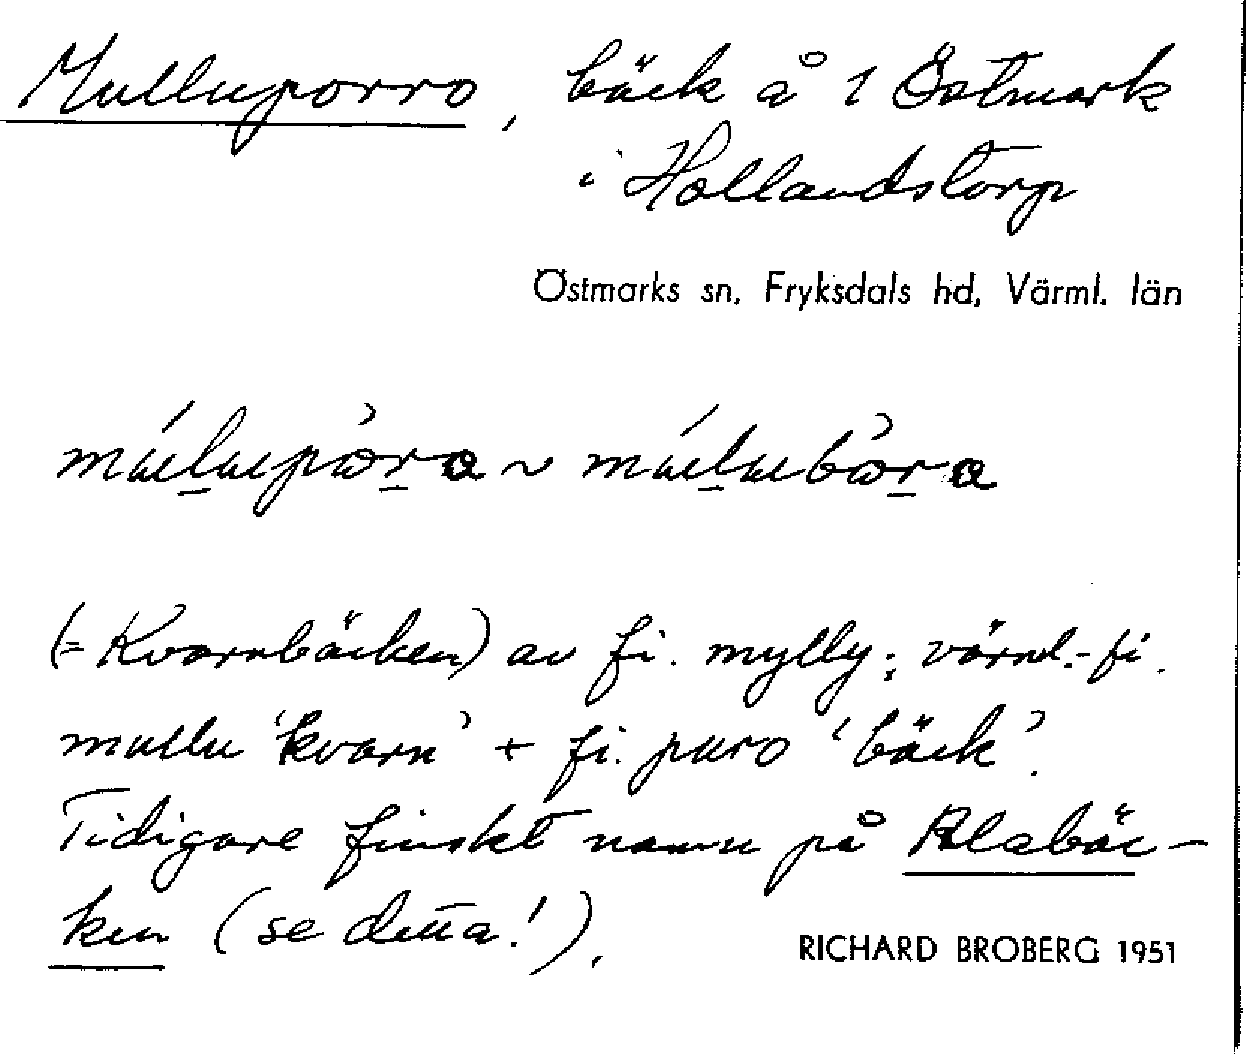 Mulluporro, bäck å 1 Östmark
i Hollandstorp
Östmarks sn, Fryksdals hd, Värml. län
(= Kvarnbäcken) av fi. mylly; värml.-fi.
mullu 'kvarn' + fi. puro 'bäck'.
Tidigare finskt namn på Alabäc-
ken (se detta!).
RICHARD BROBERG 1951